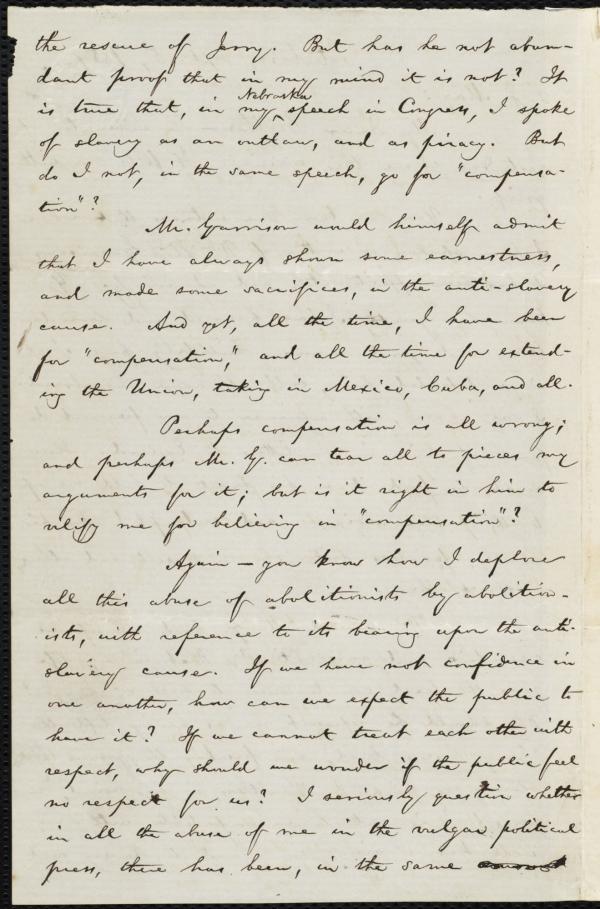 the rescue of Jerry. But has he not abun-
dant proof that in my mind it is not? It
Nebraska
is true that, in my speech in Congress, I spoke
of slavery as an outlaw, and as piracy. But
do I not, in the same speech, go for "compensa-
tion"?
Mr. Garrison would himself admit
that I have always shown some earnestness,
and made some sacrifices, in the anti-slavery
cause. And yet, all the time, I have been
for "compensation," and all the time for extend-
ing the Union, taking in Mexico, Cuba, and all.
Perhaps compensation is all wrong;
and perhaps Mr. G. can tear all to pieces my
arguments for it; but is it right in him to
vilify me for believing in "compensation"?
Again — you know how I deplore
all this abuse of abolitionists by abolition-
ists, with reference to its bearing upon the anti-
slavery cause. If we have not confidence in
one another, how can we expect the public to
have it? If we cannot treat each other with
respect, why should we wonder if the public feel
no respect for us? I seriously question whether
in all the abuse of me in the vulgar political
press, there has been, in the same